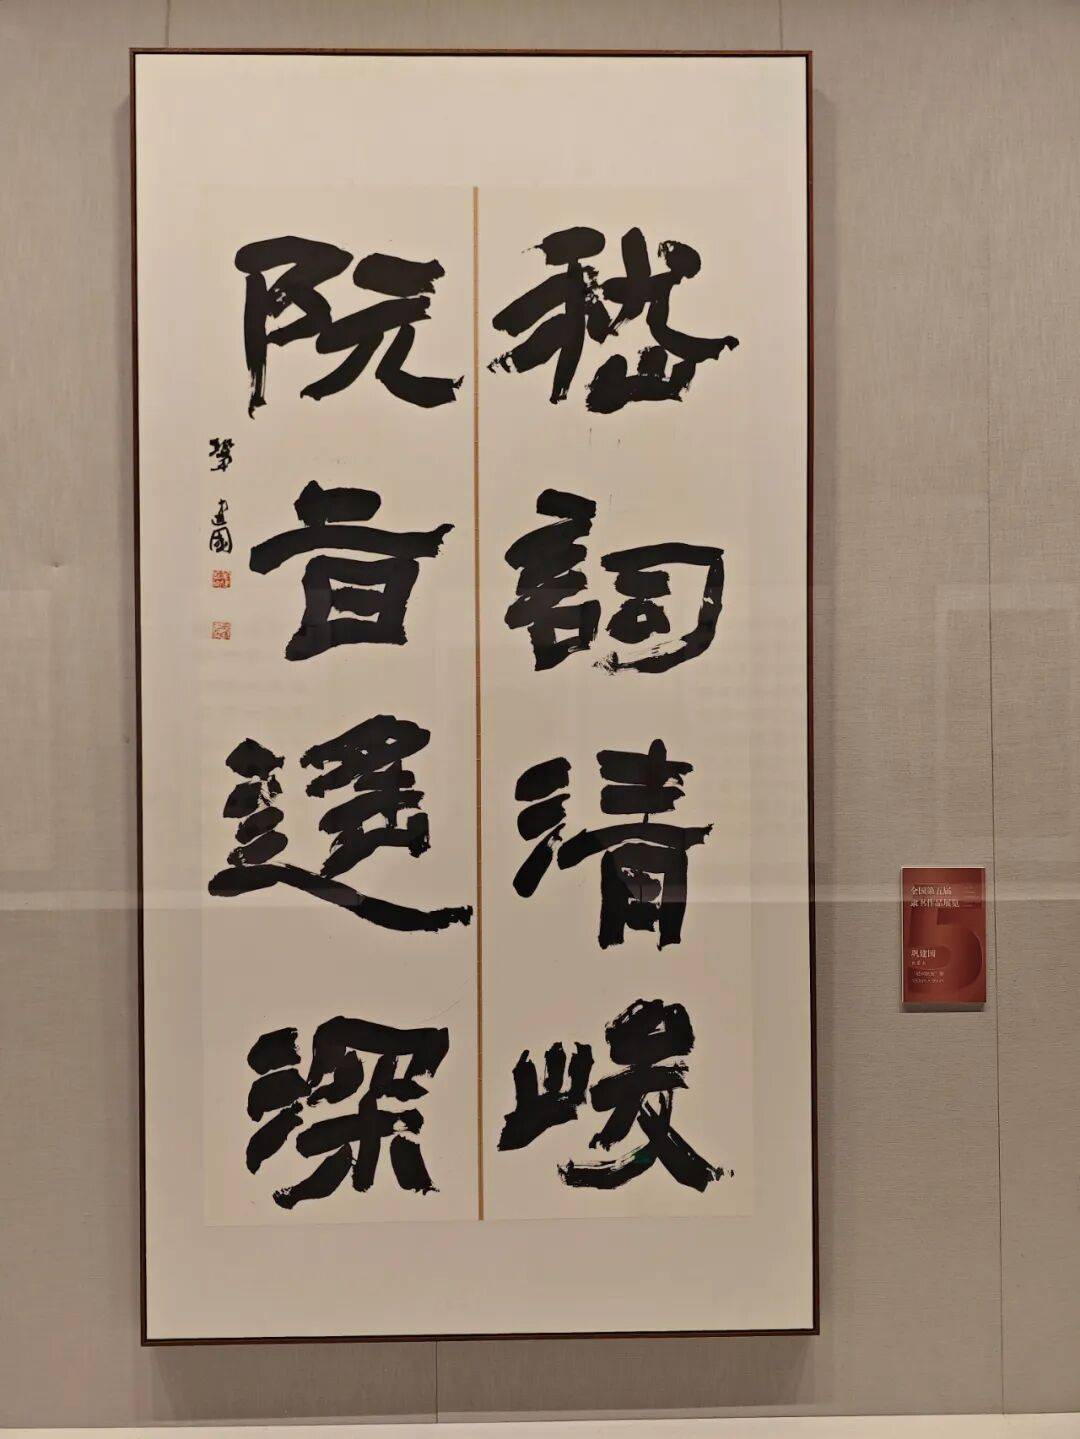 嵇詞清峻
阮旨遥深
鞏建國
全国第五届
隶书作品展览
巩建国